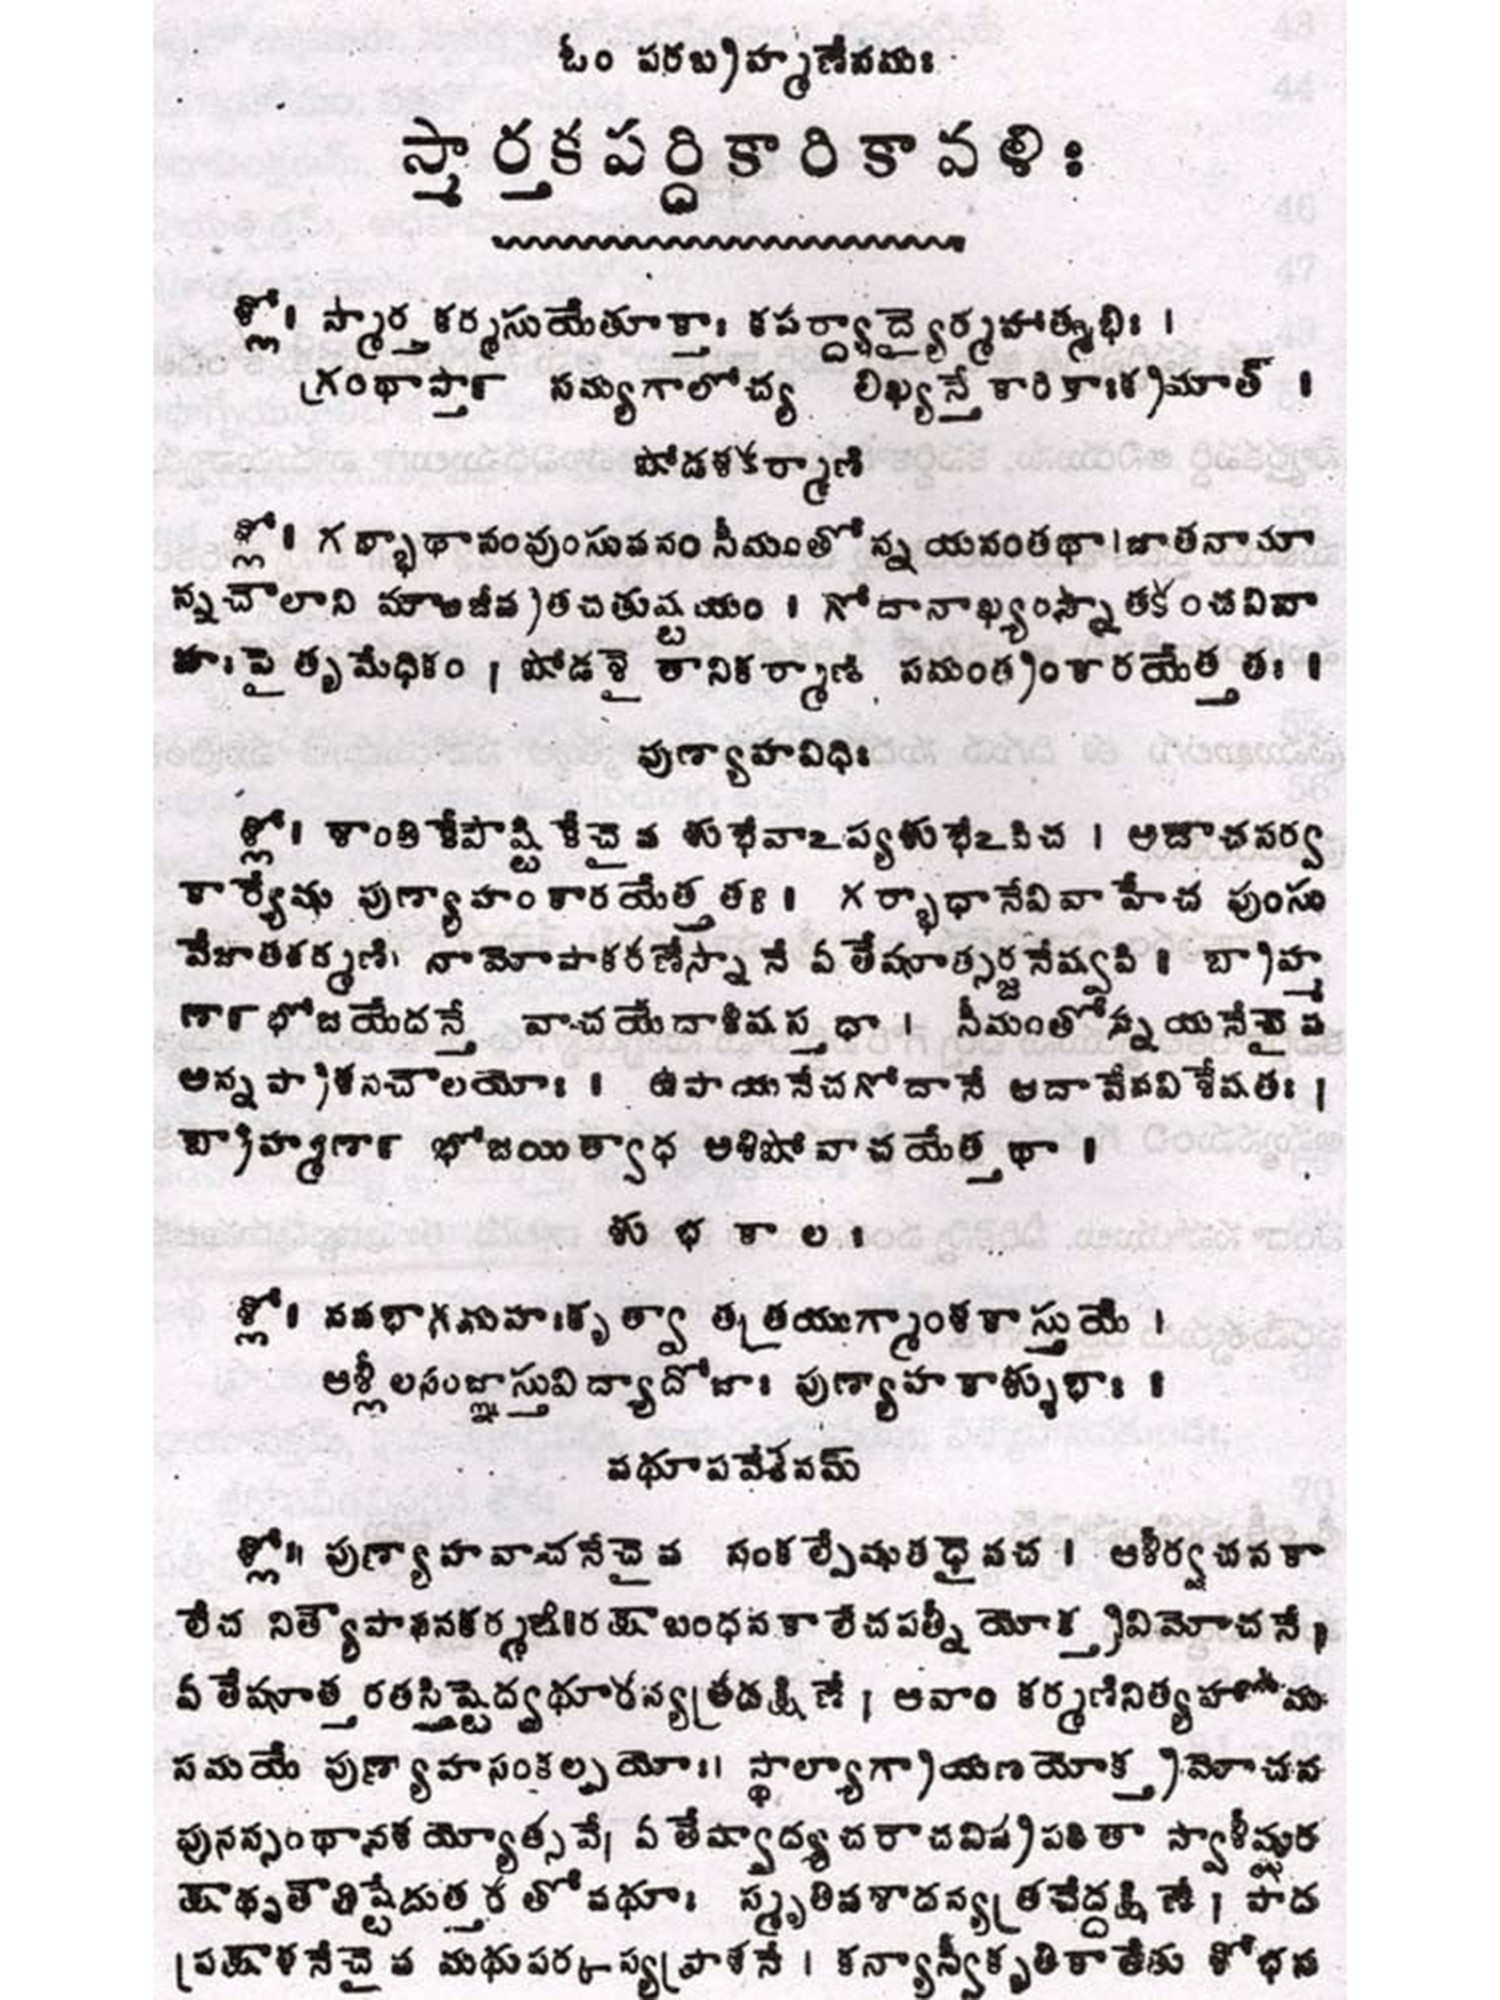 ఓం పరబ్రహ్మణేనమః
స్మార్తకపర్దికారికావళిః
శ్లో। స్మార్తకర్మసుయేతూక్తాః కపర్ద్యాద్యైర్మహాత్మభిః ।
గ్రంథాస్తా౯ సమ్యగాలోచ్య లిఖ్యన్తే కారికాఃక్రమాత్ ॥
షోడశకర్మాణి
శ్లో। గర్భాధానంపుంసువనం సీమంతోన్నయనంతథా।జాతనామా
న్నచౌలాని మౌఞ్జీవ్రతచతుష్టయం । గోదానాఖ్యంస్నాతకంచవివా
హఃపైతృమేధికం । షోడశైతానికర్మాణి సమంత్రంకారయేత్తతః ॥
పుణ్యాహవిధిః
శ్లో। శాంతికేపౌష్టికేచైవ శుభేవాఽప్యశుభేఽపిచ । ఆదౌచసర్వ
కార్యేషు పుణ్యాహంకారయేత్తతః । గర్భాధానేవివాహేచ పుంసు
వేజాతకర్మణి। నామోపాకరణేస్నానే ఏతేషూత్సర్జనేష్వపి ॥ బ్రాహ్మ
ణా౯భోజయేదన్తే వాచయేదాశిషస్తధా । సీమంతోన్నయనేచైవ
అన్నప్రాశనచౌలయోః । ఉపాయనేచగోదానే ఆదావేవవిశేషతః ।
బ్రాహ్మణా౯ భోజయిత్వాధ ఆశిషోవాచయేత్తథా ॥
శుభకాలః
శ్లో। నవభాగమహఃకృత్వా తత్రయుగ్మాంశకాస్తుయే ।
అశ్లీలసంజ్ఞాస్తువిద్యాదోజాః పుణ్యాహకాశ్శుభాః ॥
వధూపవేశనమ్
శ్లో॥ పుణ్యాహవాచనేచైవ సంకల్పేషుతధైవచ । ఆశీర్వచనకా
లేచ నిత్యౌపాసనకర్మణి।రక్షాబంధనకాలేచపత్నీయోక్త్రవిమోచనే।
ఏతేషూత్తరతస్తిష్టెద్వధూరన్యత్రదక్షిణే । ఆవాం కర్మణినిత్యహోమ
సమయే పుణ్యాహసంకల్పయోః। స్థాల్యాగ్రాయణయోక్త్రమోచన
పునస్సంథానశయ్యోత్సవే। ఏతేష్వాద్యచరాచవిప్రపఠితా స్వాశీష్షుర
క్షాధృతౌతిష్టేదుత్తరతోవధూః స్మృతివశాదన్యత్రచేద్దక్షిణే । పాద
ప్రక్షాళనేచైవ మధుపర్కస్యప్రాశనే । కన్యాస్వీకృతికాలేతు శోభన